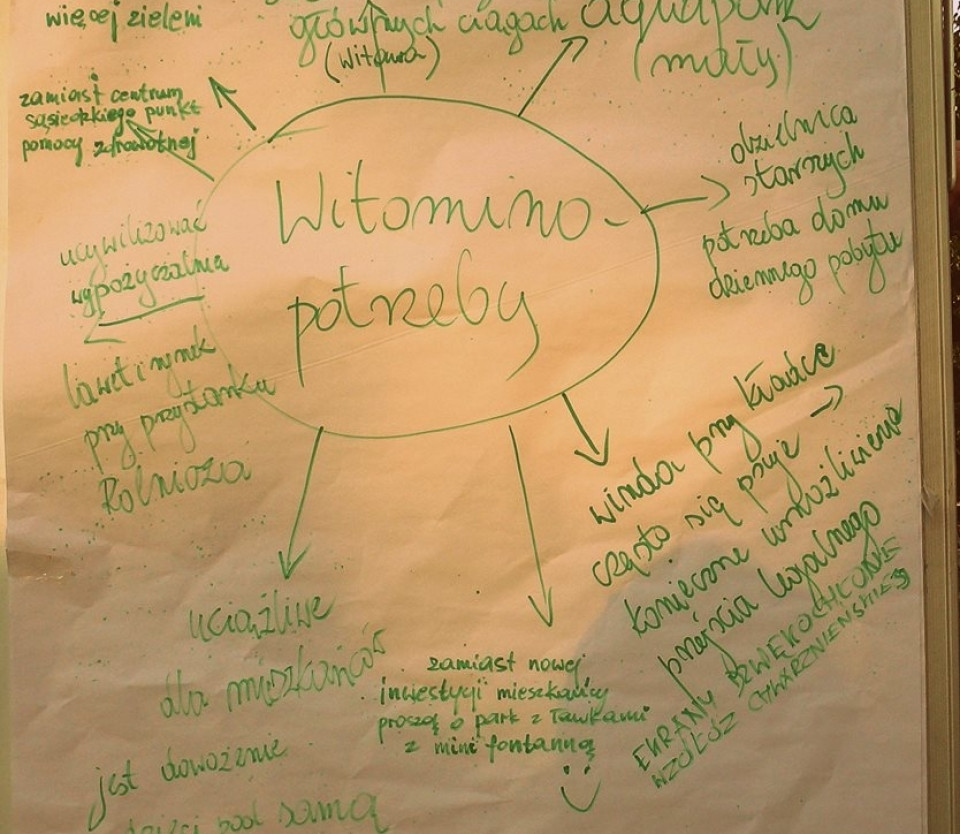 więcej zieleni
głównych ciągach
(Witawa)
aquapark
(mały)
zamiast centrum
sąsiedzkiego punkt
pomocy zdrowotnej
Witomino -
potrzeby
dzielnica
starszych
potrzeba domu
dziennego pobytu
ucywilizować
wypożyczalnia
lawet i rynek
przy przystanku
Rolnicza
winda przy kładce
często się psuje →
konieczne umożliwienie
przejścia legalnego
EKRANY DŹWIĘKOCHŁONNE
WZDŁÓŻ CHWARZNIEŃSKIEJ
uciążliwe
dla mieszkańców
jest dowożenie
dzieci pod samą
zamiast nowej
inwestycji mieszkańcy
proszą o park z ławkami
z mini fontanną